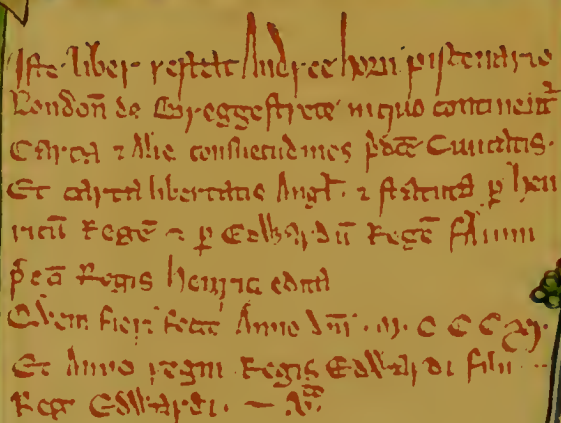 Iste liber restat Andree horn piscenario
London̄ de Breggestrete in quo continent᷑
Carta ⁊ Alie consuetudines p̄dc̄e Ciuitatis.
Et carta libertatis Angl̄. ⁊ statuta ꝑ hen
ricū Regē ⁊ ꝑ Edwardū Regē filium
p̄dc̄i Regis henrici edita
Quem fieri fecit Anno dn̄i . m . c c c xj.
Et Anno regni Regis Edwardi filii
Reg̃ Edwardi . —